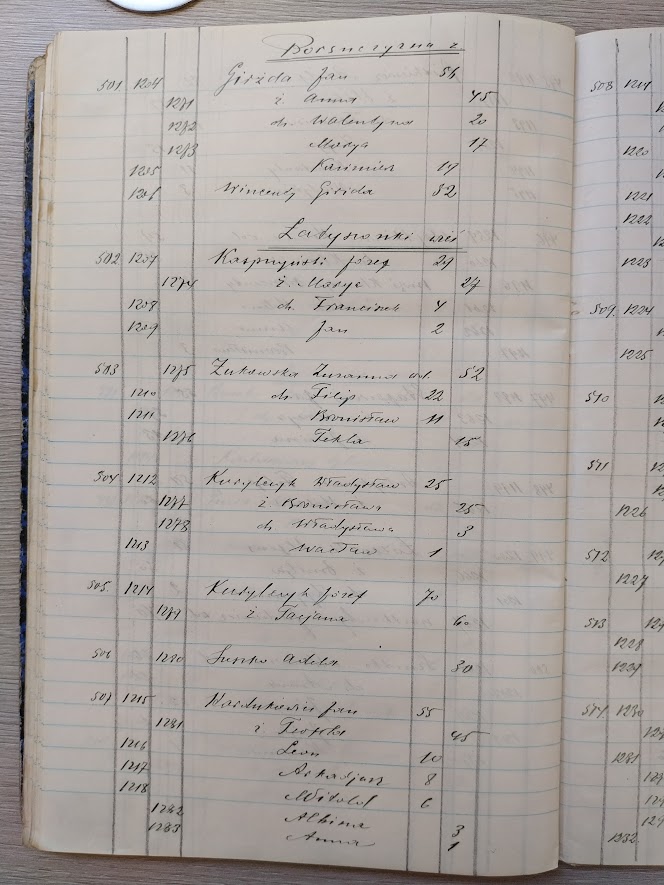 501 1204 Girżda Jan 56
1271 ż. Anna 45
1272 ch. Walentyna 20
1273 Marya 17
1205 Kazimierz 19
1206 Wincenty Girżda 82
Ładysonki wieś
502 1207 Kasprzyński Józef 29
1274 ż. Marya 27
1208 ch. Franciszek 4
1209 Jan 2
503 1275 Żukowska Zuzanna wd. 52
1210 ch. Filip 22
1211 Bronisław 11
1276 Tekla 15
504 1212 Kuryłczyk Władysław 25
1277 ż Bronisława 25
1278 ch. Władysława 3
1213 Wacław 1
505. 1214 Kuryłczyk Józef 70
1279 ż Tacjana 60
506 1280 Suszko Adela 30
507 1215 Jan 55
1281 ż Teofila 45
1216 Leon 10
1217 Arkadjusz 8
1218 Witold 6
1282 Albina 3
1283 Anna 1
508 1219
1220
1221
1222
1223
509. 1224
1225
510
511
1226
512
1227
513
1228
1229
514. 1230
1231
1232